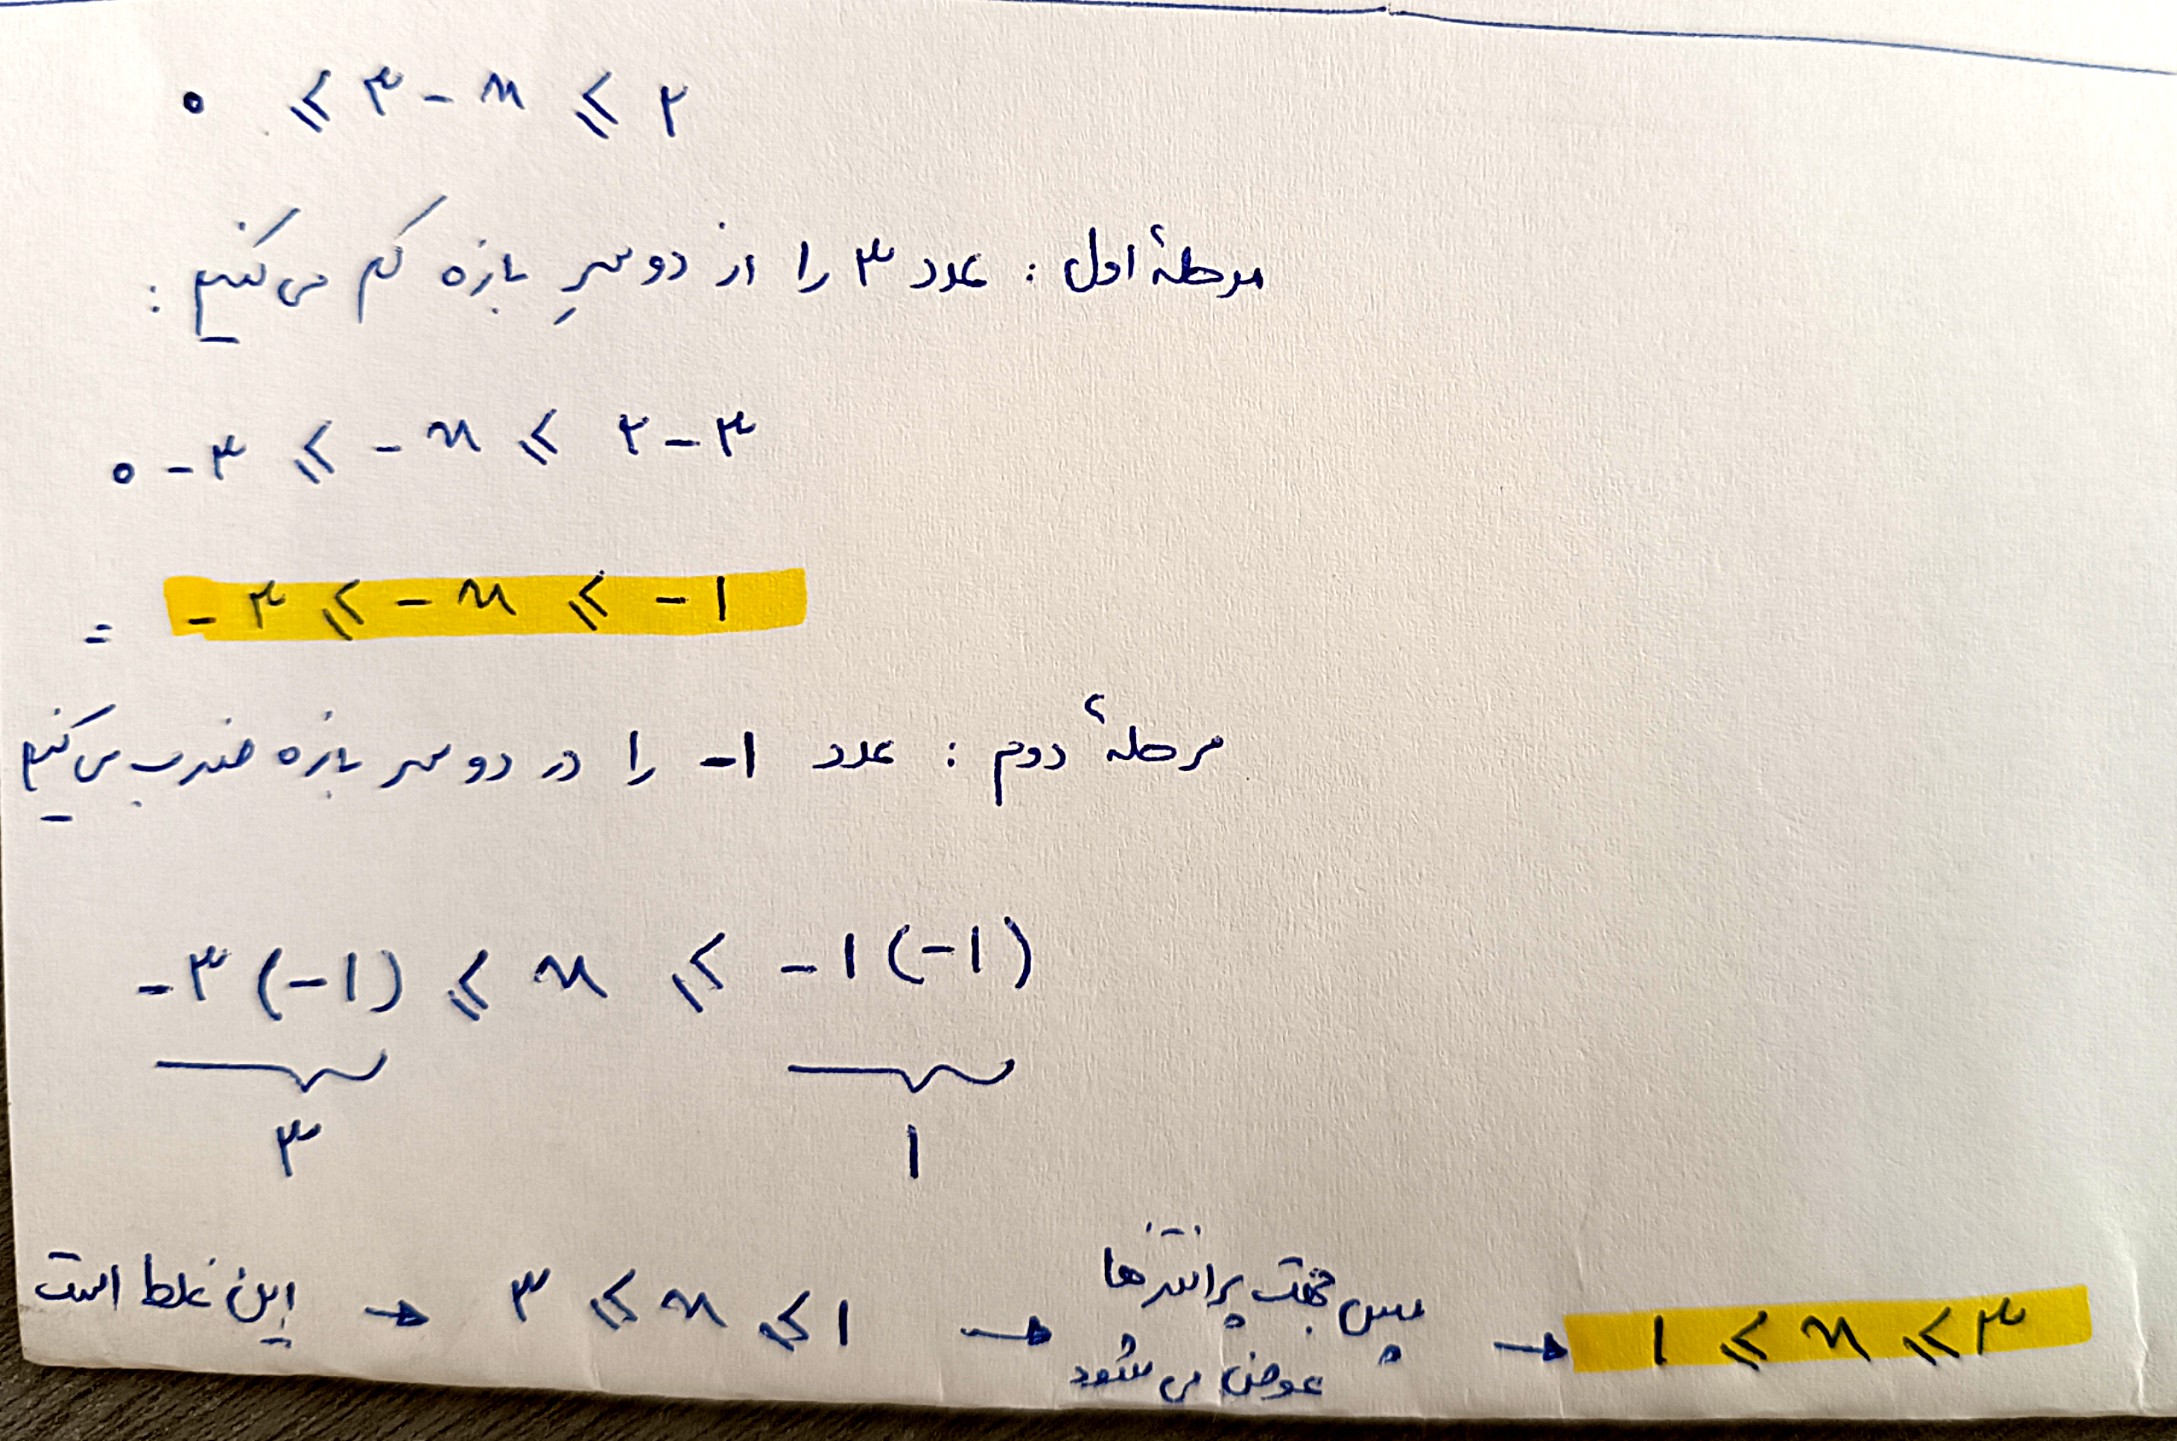 ۰ ≤ ۳ - x ≤ ۲
مرحلهٔ اول : عدد ۳ را از دو سرِ بازه کم می‌کنیم :
۰ - ۳ ≤ - x ≤ ۲ - ۳
= - ۳ ≤ - x ≤ - ۱
مرحلهٔ دوم : عدد ۱- را در دو سر بازه ضرب می‌کنیم
- ۳ (- ۱) ≤ x ≤ - ۱ (- ۱)
۳ ۱
این غلط است → ۳ ≤ x ≤ ۱ → پس جهت پرانتزها عوض می‌شود → ۱ ≤ x ≤ ۳